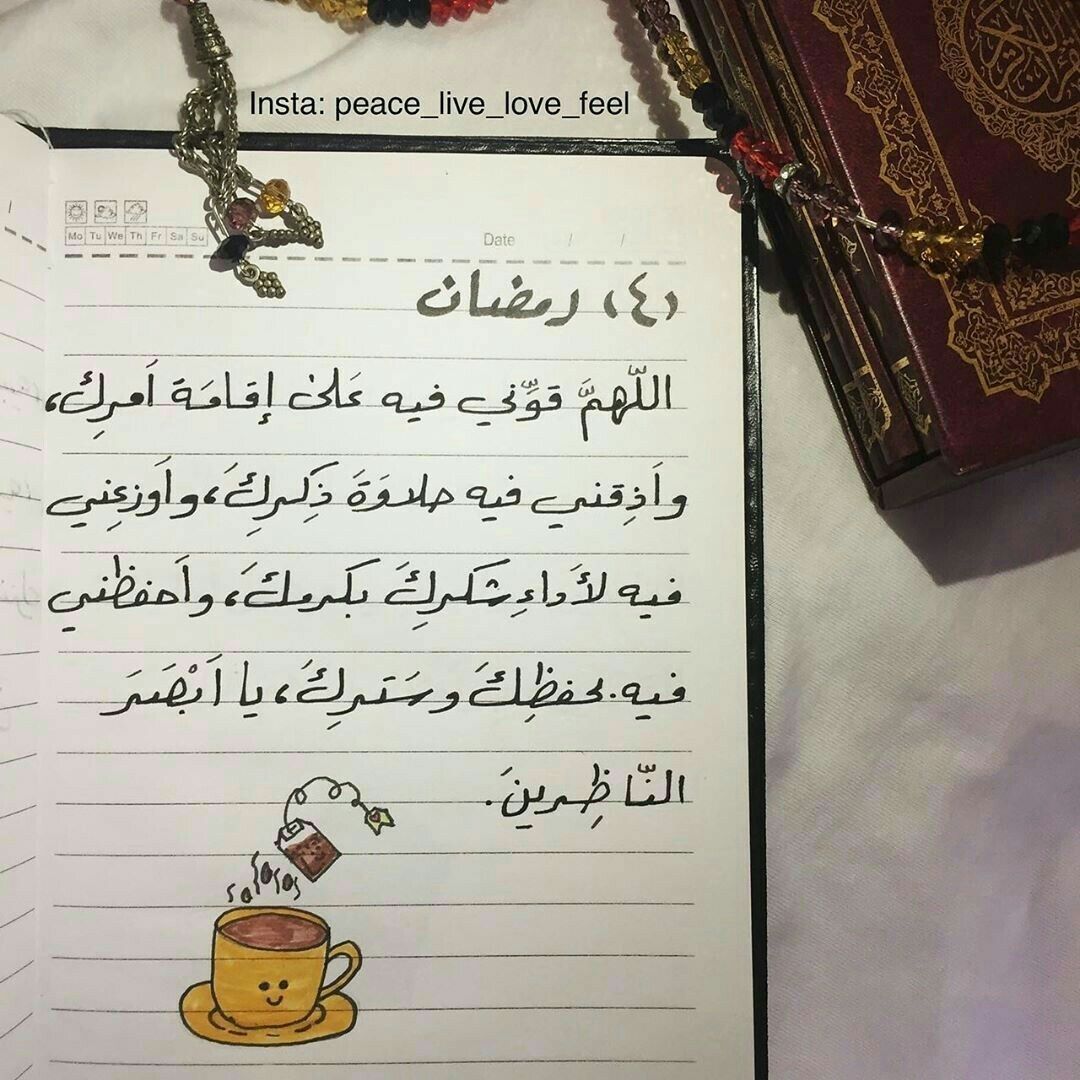 Insta: peace_live_love_feel
Mo Tu We Th Fr Sa Su
Date / /
(٤) رمضان
اللّهمَّ قوِّني فيه عَلى إقامَة اَمرِكَ،
واَذِقني فيه حلاوَةَ ذِكرِكَ، واَوزِعني
فيه لأَداءِ شكرِكَ بكرمكَ، واَحفظني
فيه بحفظِكَ وسَترِكَ، يا اَبْصَرَ
النّاظِرينَ.